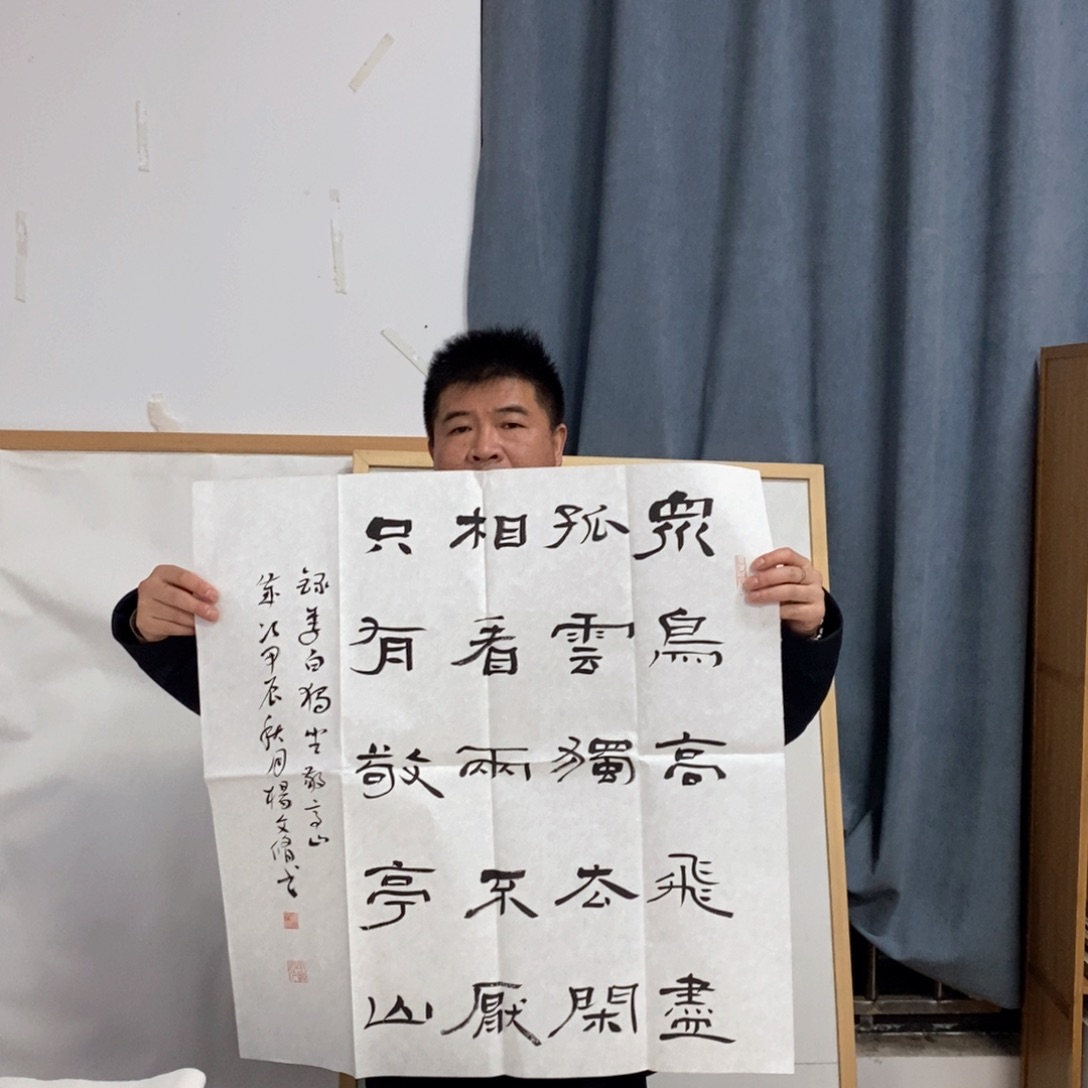 眾鳥高飛盡
孤雲獨去閑
相看兩不厭
只有敬亭山
録李白獨坐敬亭山
歲次甲辰秋月楊文脩书